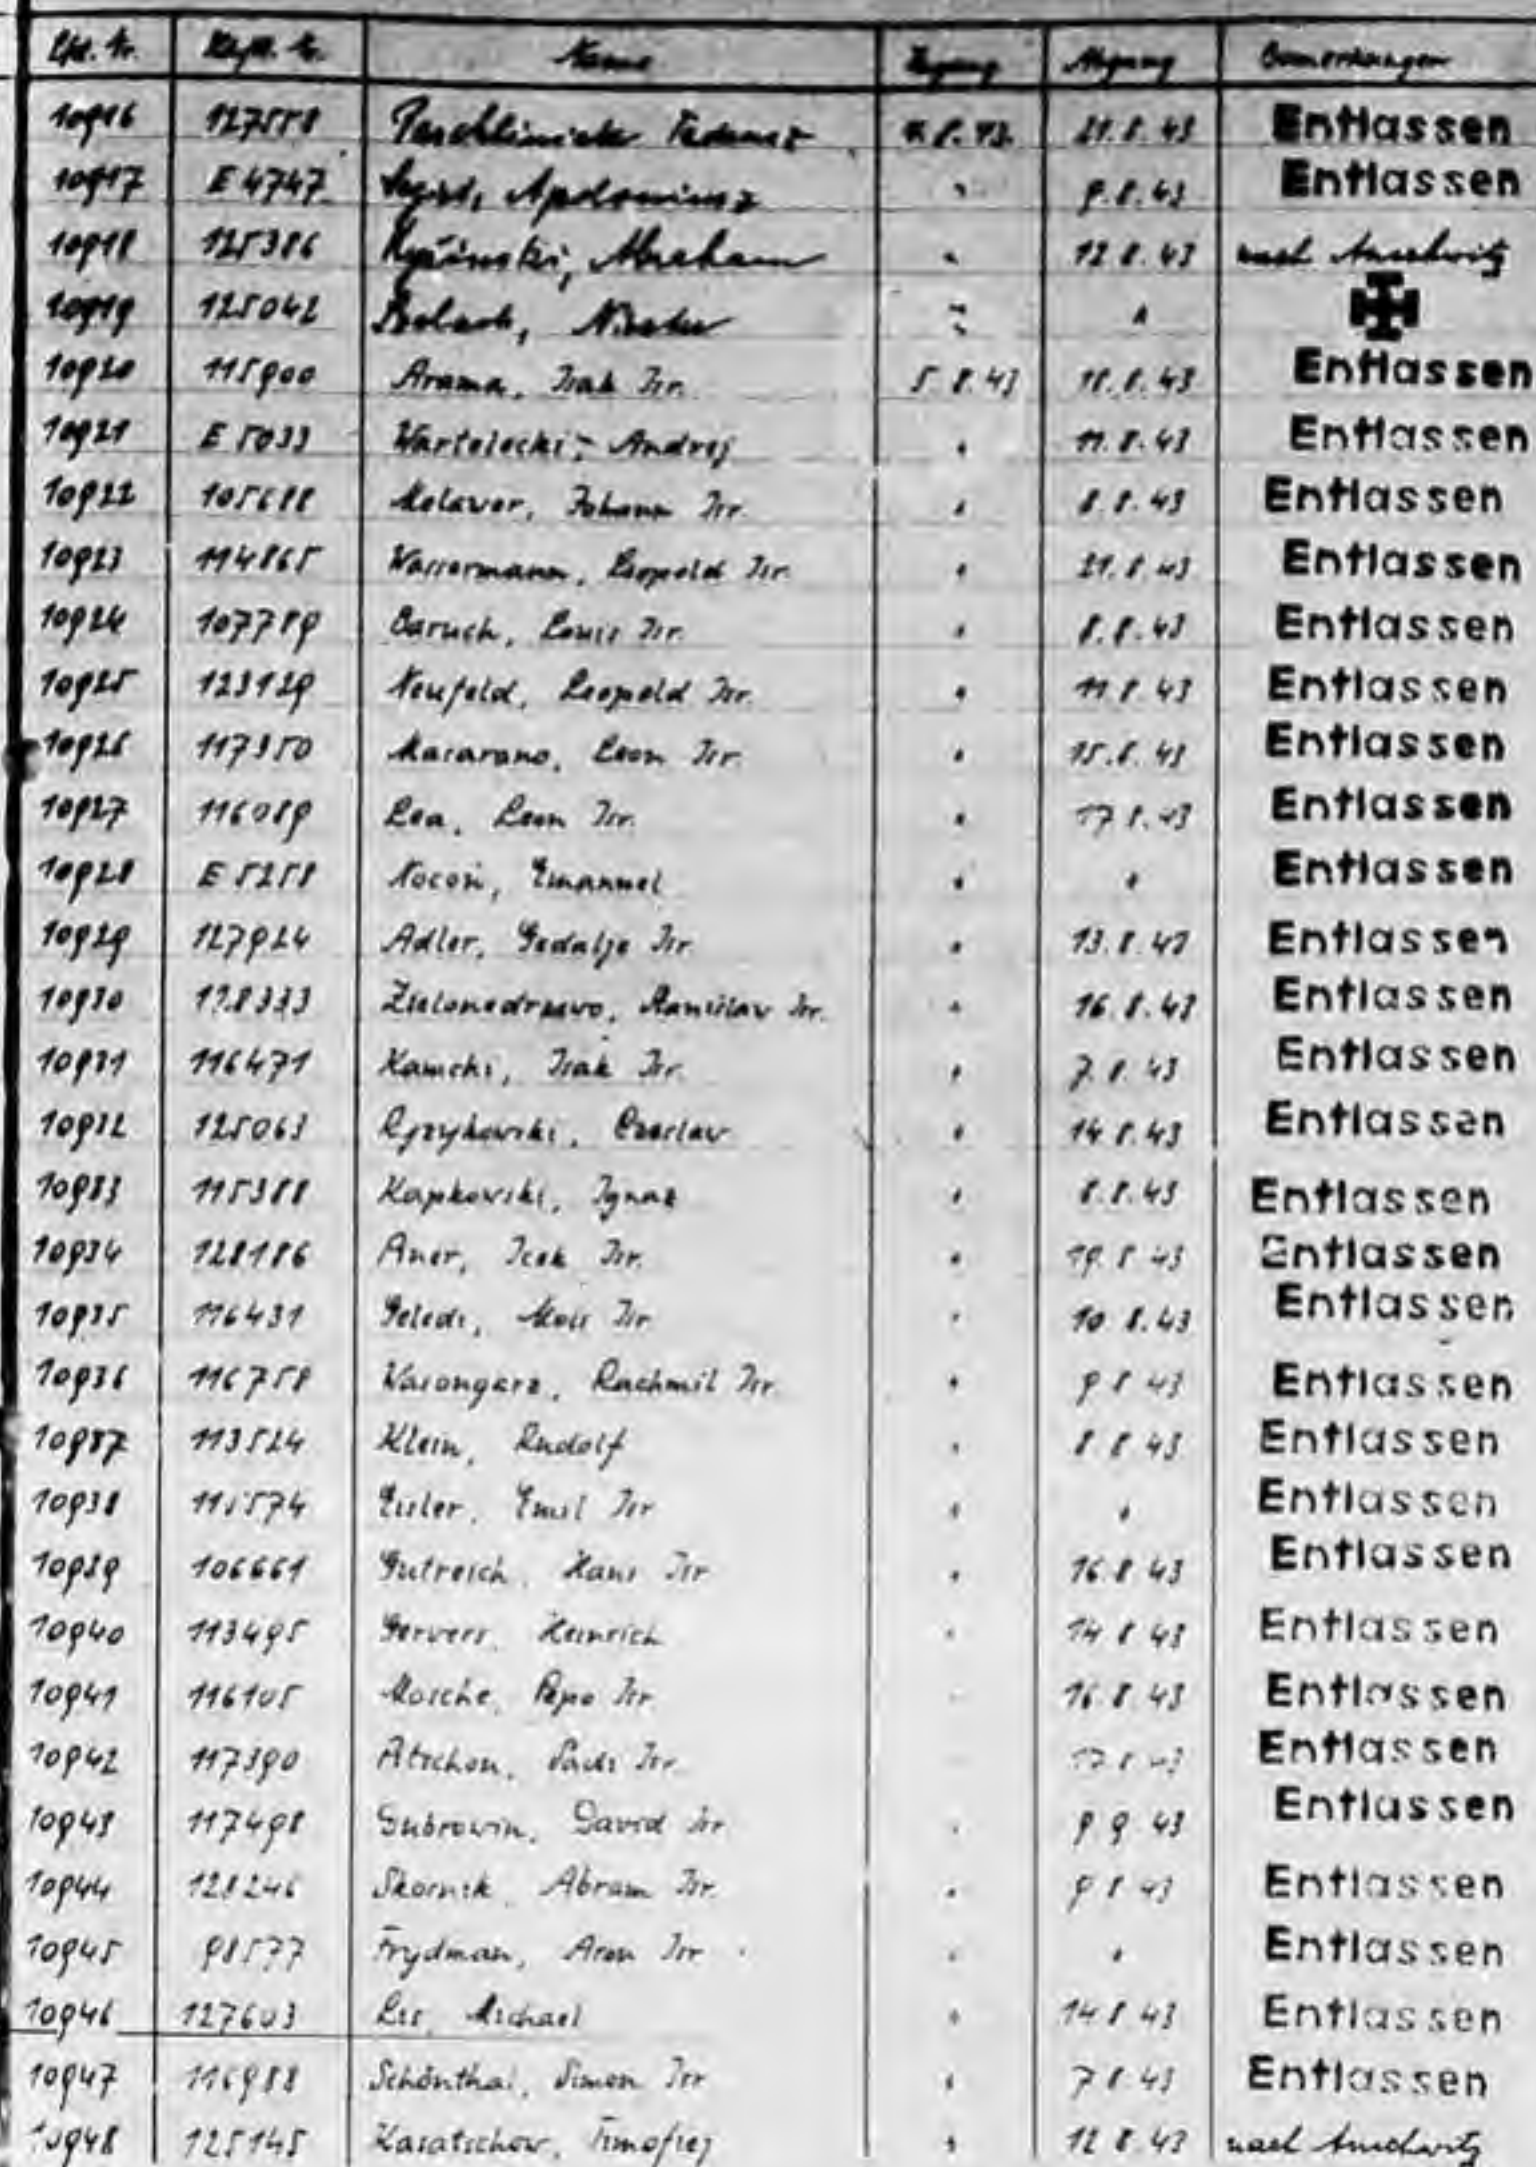 Lfd. Nr. Häftl. Nr. Name Zugang Abgang Bemerkungen
10916 127558 21.8.43 Entlassen
10917 E 4747 9.8.43 Entlassen
10918 125386 Abraham " 12.8.43 nach Auschwitz
10919 125042 " "
10920 115900 Arama, Isak Isr. 5.8.43 18.8.43 Entlassen
10921 E 5033 Wartelecki, Andrej " 11.8.43 Entlassen
10922 105688 Melawer, Johann Isr. " 8.8.43 Entlassen
10923 114865 Wassermann, Leopold Isr. " 21.8.43 Entlassen
10924 107789 Baruch, Louis Isr. " 8.8.43 Entlassen
10925 123129 Neufeld, Leopold Isr. " 11.8.43 Entlassen
10926 117350 Masarano, Leon Isr. " 15.8.43 Entlassen
10927 116089 Lea, Leon Isr. " 17.8.43 Entlassen
10928 E 5258 Nocoń, Emanuel " " Entlassen
10929 127924 Adler, Gedalje Isr. " 13.8.43 Entlassen
10930 128333 Zielonedrzewo, Stanislaw Isr. " 16.8.43 Entlassen
10931 116471 Kamchi, Isak Isr. " 7.8.43 Entlassen
10932 125063 Czeslaw " 14.8.43 Entlassen
10933 115388 Kapkowski, Ignaz " 8.8.43 Entlassen
10934 128186 Auer, Icek Isr. " 19.8.43 Entlassen
10935 116431 Geledi, Mois Isr. " 10.8.43 Entlassen
10936 116758 Wasongarz, Rachmil Isr. " 9.8.43 Entlassen
10937 113524 Klein, Rudolf " 8.8.43 Entlassen
10938 115574 Eisler, Emil Isr. " " Entlassen
10939 106661 Gutreich, Hans Isr. " 16.8.43 Entlassen
10940 113495 Gervers, Heinrich " 14.8.43 Entlassen
10941 116105 Mosche, Pepo Isr. " 16.8.43 Entlassen
10942 117390 Atschon, Isr. 17.8.43 Entlassen
10943 117498 Dubrowin, David Isr. " 9.9.43 Entlassen
10944 128246 Skornik, Abram Isr. " 9.8.43 Entlassen
10945 98577 Frydman, Aron Isr. " " Entlassen
10946 127603 Lis, Michael " 14.8.43 Entlassen
10947 116988 Schönthal, Simon Isr. " 7.8.43 Entlassen
10948 125145 Kasatschow, Timofiej " 12.8.43 nach Auschwitz